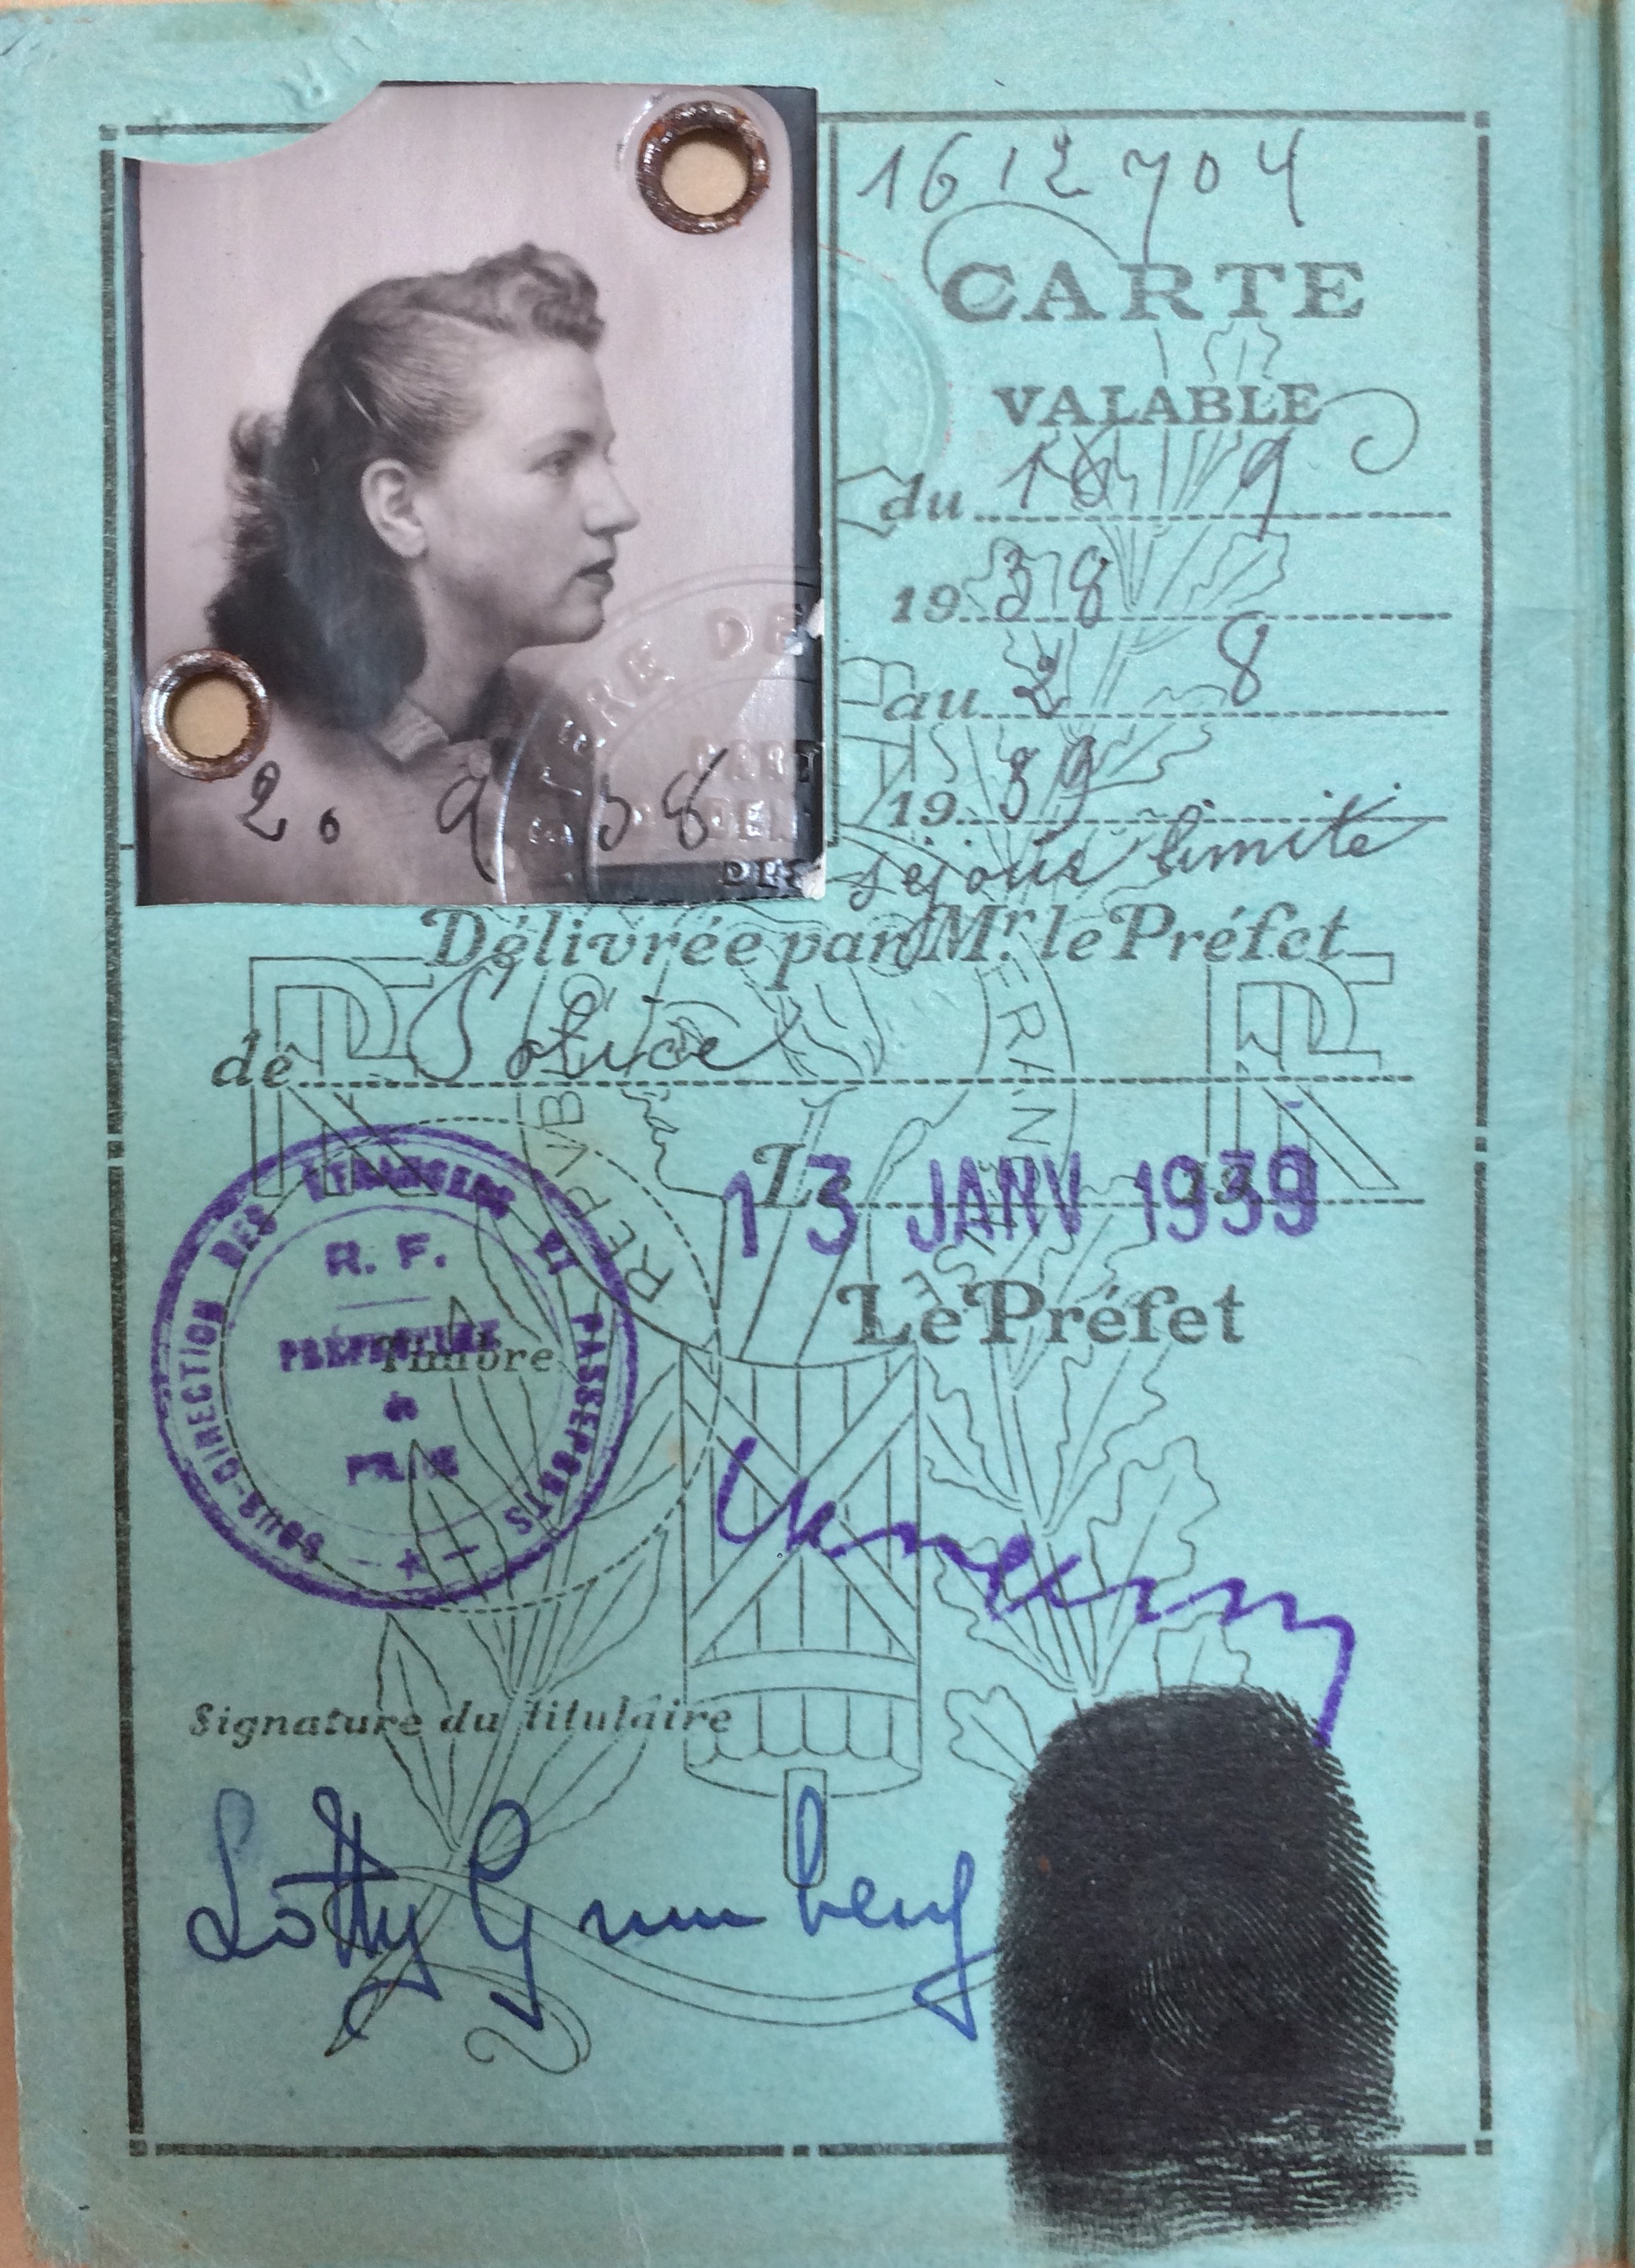 1612704
CARTE
VALABLE
du 16 9
1938
au 2 8
1939
séjour limité
2. 9 38
Délivrée par Mr. le Préfet
de Police
Le 13 JANV 1939
Le Préfet
SOUS-DIRECTION DES ETRANGERS ET PASSEPORTS
R. F.
PRÉFECTURE
de
POLICE
Timbre
Signature du titulaire
Lotty Grumberg